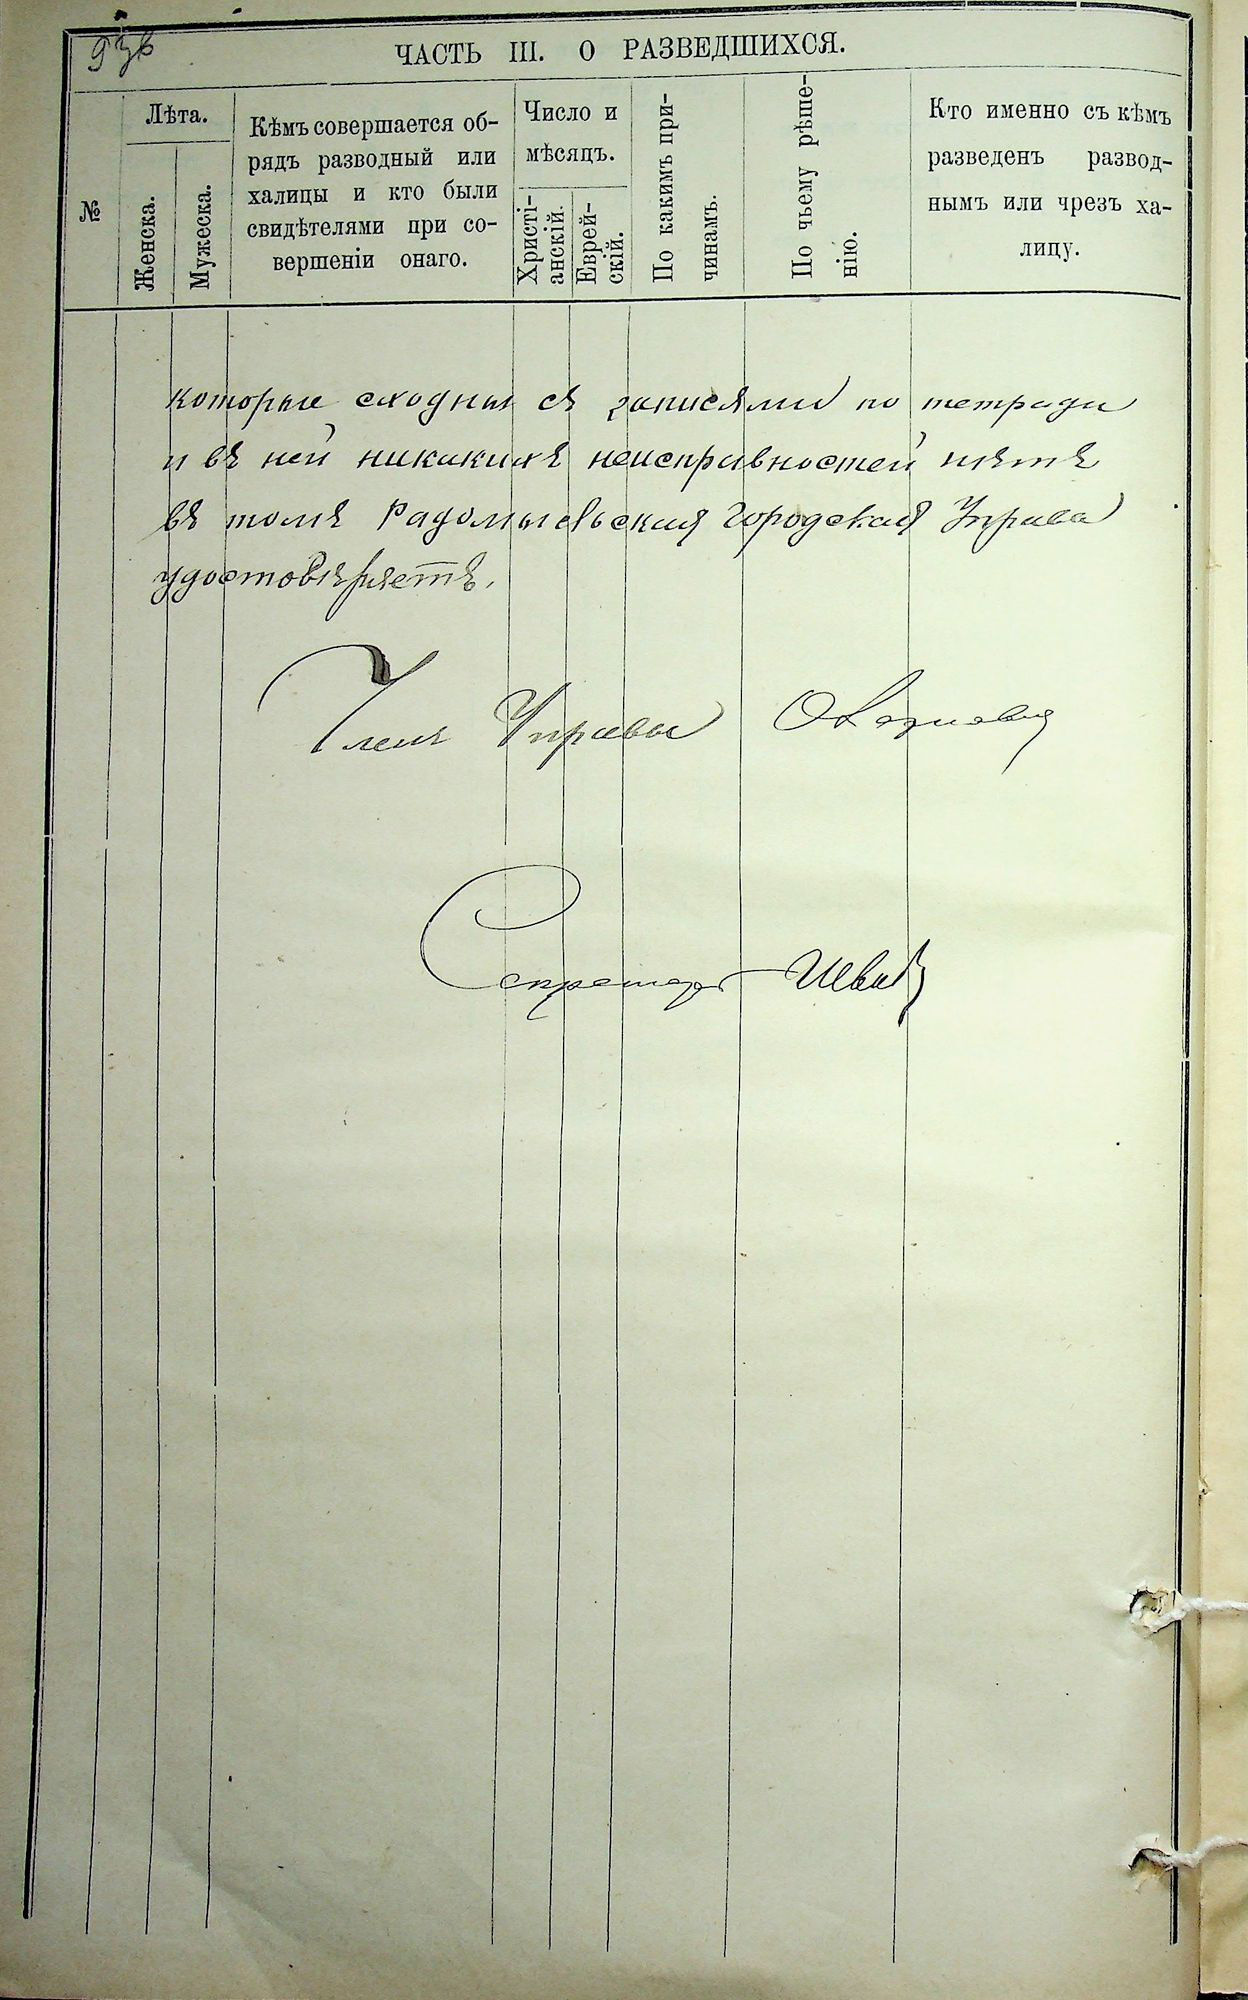 ЧАСТЬ III. О РАЗВЕДШИХСЯ.
№
Лѣта.
Женска.
Мужеска.
Кѣмъ совершается об-
рядъ разводный или
халицы и кто были
свидѣтелями при со-
вершеніи онаго.
Число и
мѣсяцъ.
Христі-
анскій.
Еврей-
скій.
По какимъ при-
чинамъ.
По чьему рѣше-
нію.
Кто именно съ кѣмъ
разведенъ развод-
нымъ или чрезъ ха-
лицу.
которые сходны съ записями по тетради
и въ ней никакихъ неисправностей нѣтъ
въ томъ Радомысльская Городская Управа
удостовѣряетъ.
Членъ Управы
Секретарь